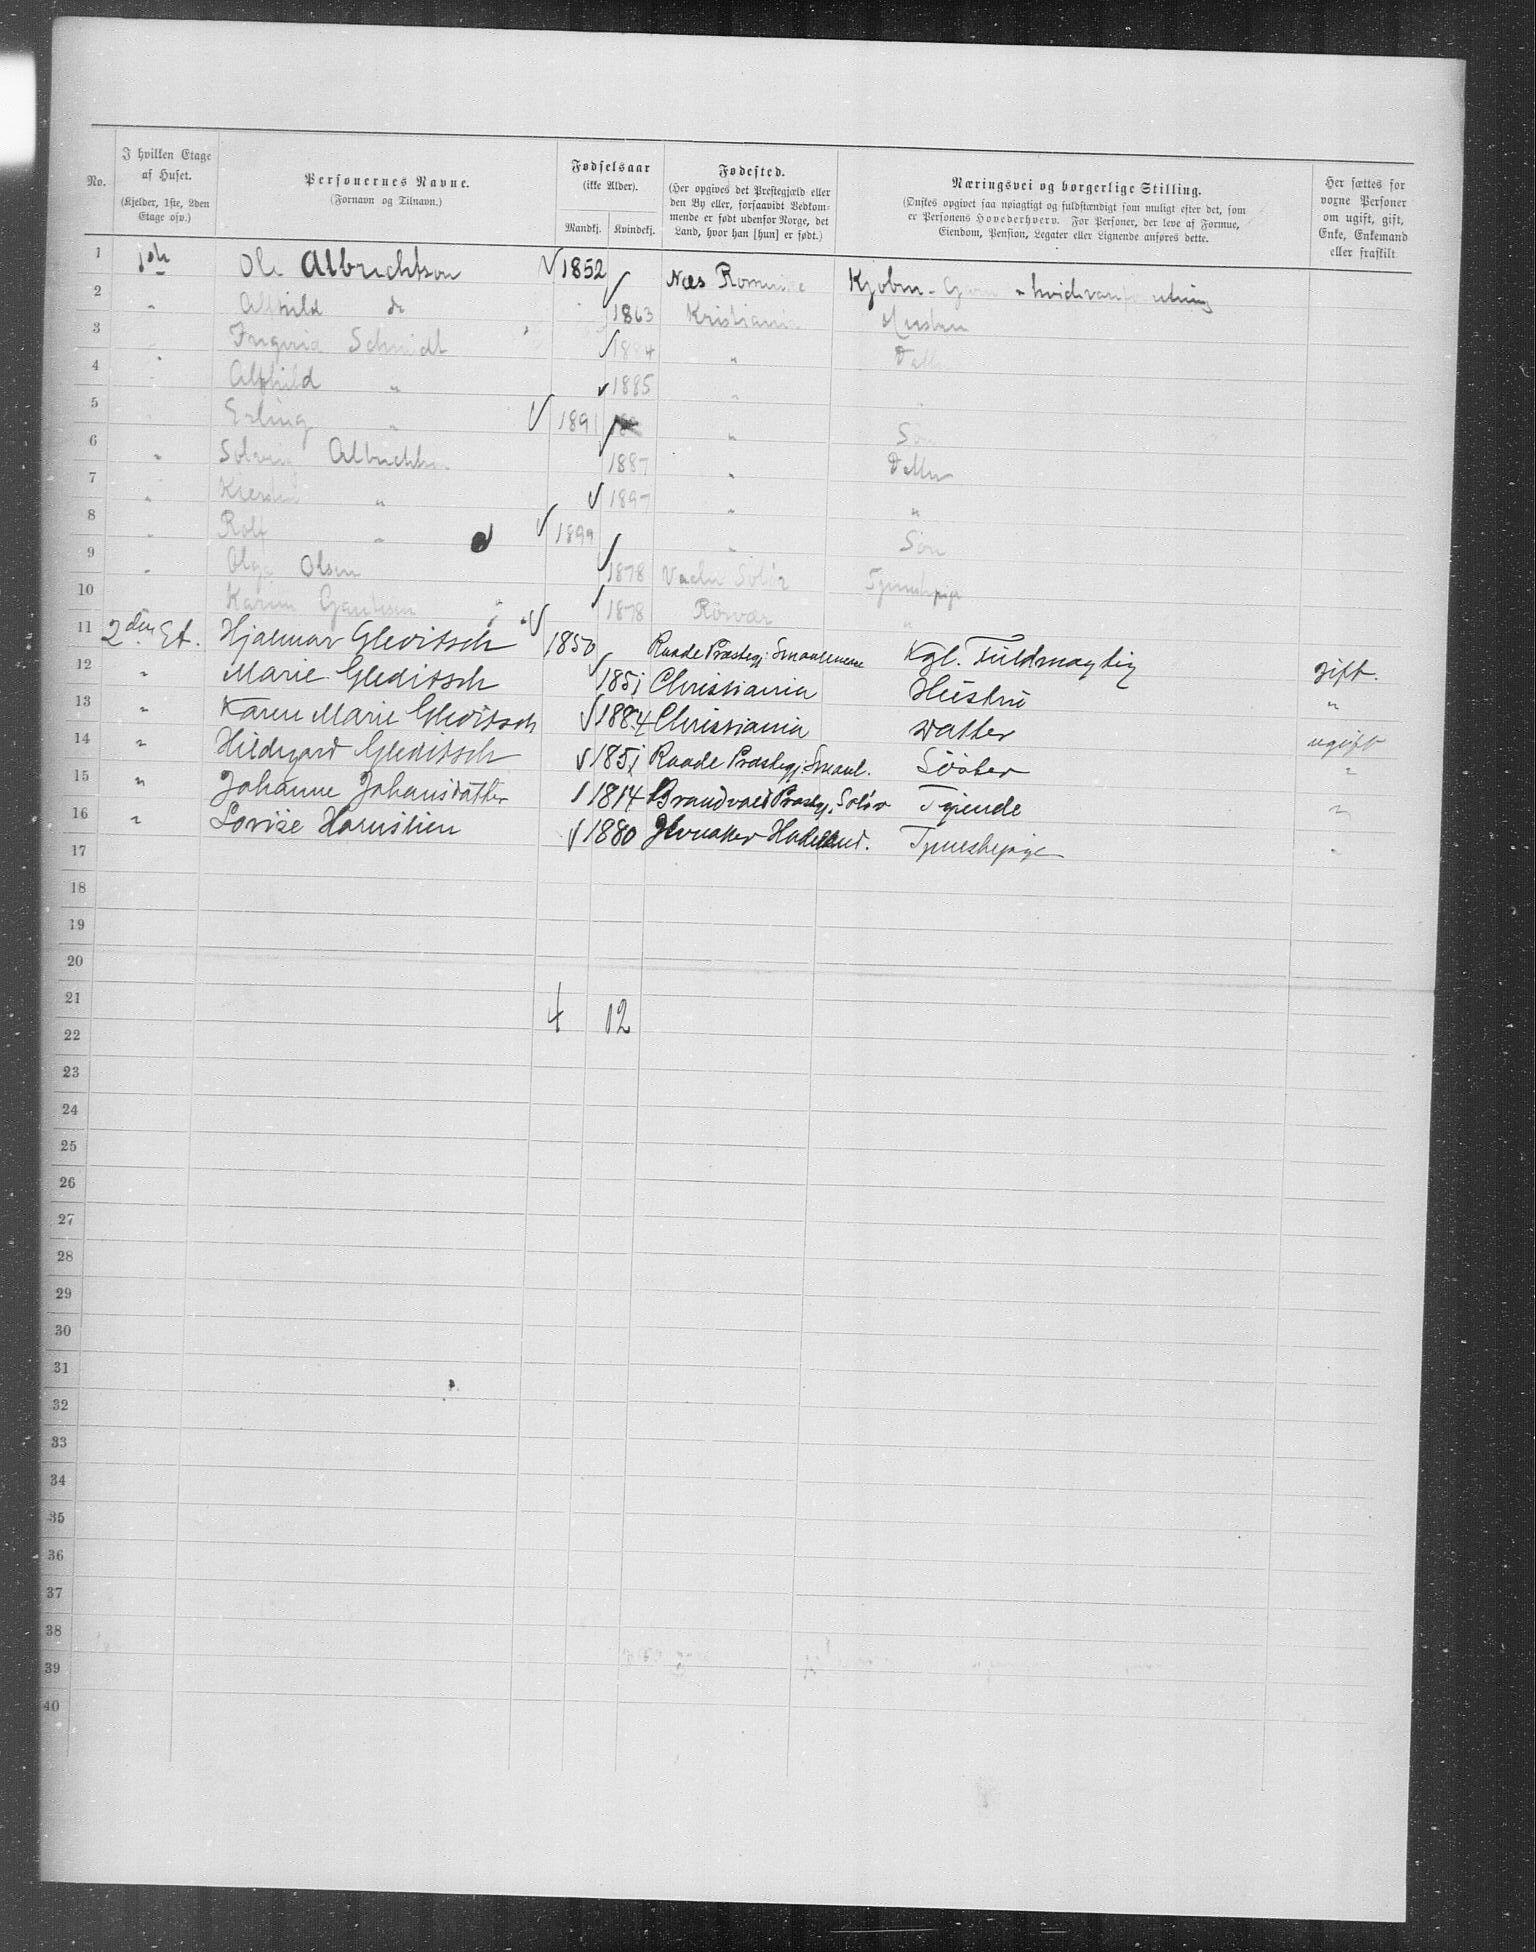 No.
I hvilken Etage af Huset.
(Kjelder, 1ste, 2den Etage osv.)
Personernes Navne.
(Fornavn og Tilnavn.)
Fødselsaar
(ikke Alder).
Mandkj. Kvindekj.
Fødested.
(Her opgives det Prestegjæld eller den By eller, forsaavidt Vedkommende er født udenfor Norge, det Land, hvor han [hun] er født.)
Næringsvei og borgerlige Stilling.
(Ønskes opgivet saa nøiagtigt og fuldstændigt som muligt efter det, som er Personens Hovederhverv. For Personer, der leve af Formue, Eiendom, Pension, Legater eller Lignende anføres dette.
Her sættes for voxne Personer om ugift, gift, Enke, Enkemand eller fraskilt
1 Ole Albrechtson 1852 Næs Romerike Kjøbm.
2 " Alfhild do 1863 Kristiania Hustru
3 Schmidt 1884 "
4 " Alfhild " 1885 "
5 Erling " 1891 " Søn
6 " Solveig Albrechtson 1887 " Datter
7 " " 1897 " "
8 " Rolf " 1899 " Søn
9 " Olga Olsen 1878 Solør Tjenestepige
10 Karen 1878 Rörvær "
11 2den Et. Hjalmar Gleditsch 1850 Raade Præstegj. Smaalenene Kgl. Fuldmægtig gift.
12 " Marie Gleditsch 1851 Christiania Hustru "
13 " Karen Marie Gleditsch 1884 Christiania Datter ugift
14 " Hildegard Gleditsch 1851 Raade Præstegj. Smaal. Søster "
15 " Johanne Johansdatter 1814 Brandvold Præstgj. Solør Tjenende "
16 " Lovise Hornslien 1880 Jevnaker Hadeland. Tjenestepige "
17
18
19
20
21
4 12
22
23
24
25
26
27
28
29
30
31
32
33
34
35
36
37
38
39
40